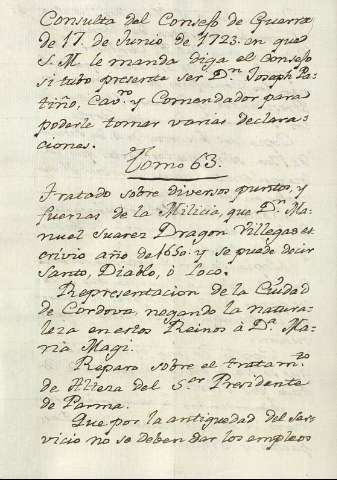 Consulta del Consejo de Guerra
de 17. de Junio de 1723. en que
S. M. le manda diga el Consejo
si tubo presente ser Dn. Joseph Pa-
tiño, Cavro. y Comendador para
poderle tomar varias declara-
ciones.
Tomo 63.
Tratado sobre diversos puntos, y
fuerzas de la Milicia, que Dn. Ma-
nuel Suarez Dragon Villegas es-
crivio año de 1650. y se puede decir
Santo, Diablo, ò loco.
Representacion de la Ciudad
de Cordova, negando la natura-
leza en estos Reinos à Da. Ma-
ria Magi.
Reparo sobre el tratamto.
de Alteza del Sor. Presidente
de Parma.
Que por la antiguedad del ser-
vicio no se deben dar los empleos